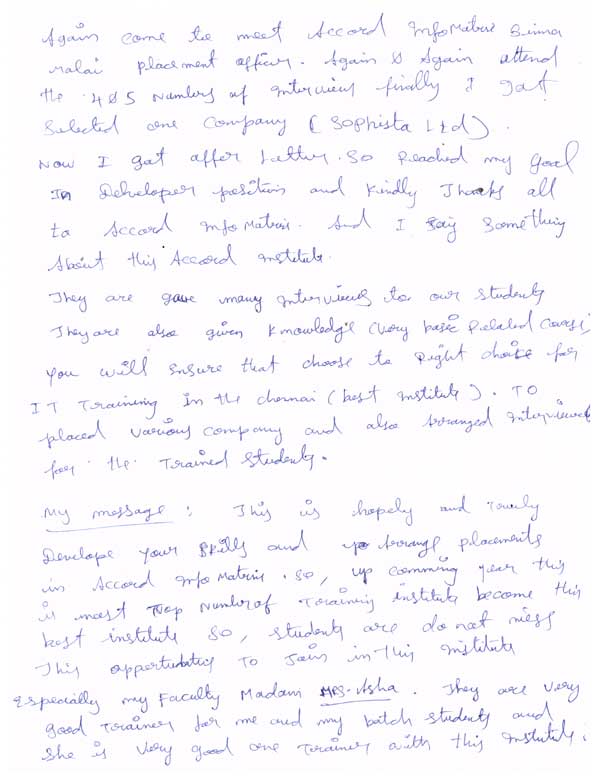 Again come to meet Accord InfoMatrix Binna
malai placement officer. Again & Again attend
the 4 or 5 Numbers of Interview finally I gat
Selected one Company (Sophista Ltd).
Now I gat affer Latter. So Reached my goal
In Developer position and kindly Thanks all
to Accord InfoMatrix. And I say Something
About this Accord institute.
They are gave many Interviews to our Students
They are also given Knowledge (Very basic Related Course)
you will ensure that choose to Right choice for
IT Training in the chennai (best institute). To
placed various company and also Arranged Interviewed
for the Trained Students.
My message : This is hopely and Trurly
Develope your Skills and Arrange placements
in Accord InfoMatrix. so, up comming year this
is most Top Number of Training institute become this
best institute so, students are do not miss
This oppertunities To Join in this institute
Especially my Faculty Madam Mrs. Asha. They are very
good Trainer for me and my batch students and
She is very good one Trainer with this Institute.